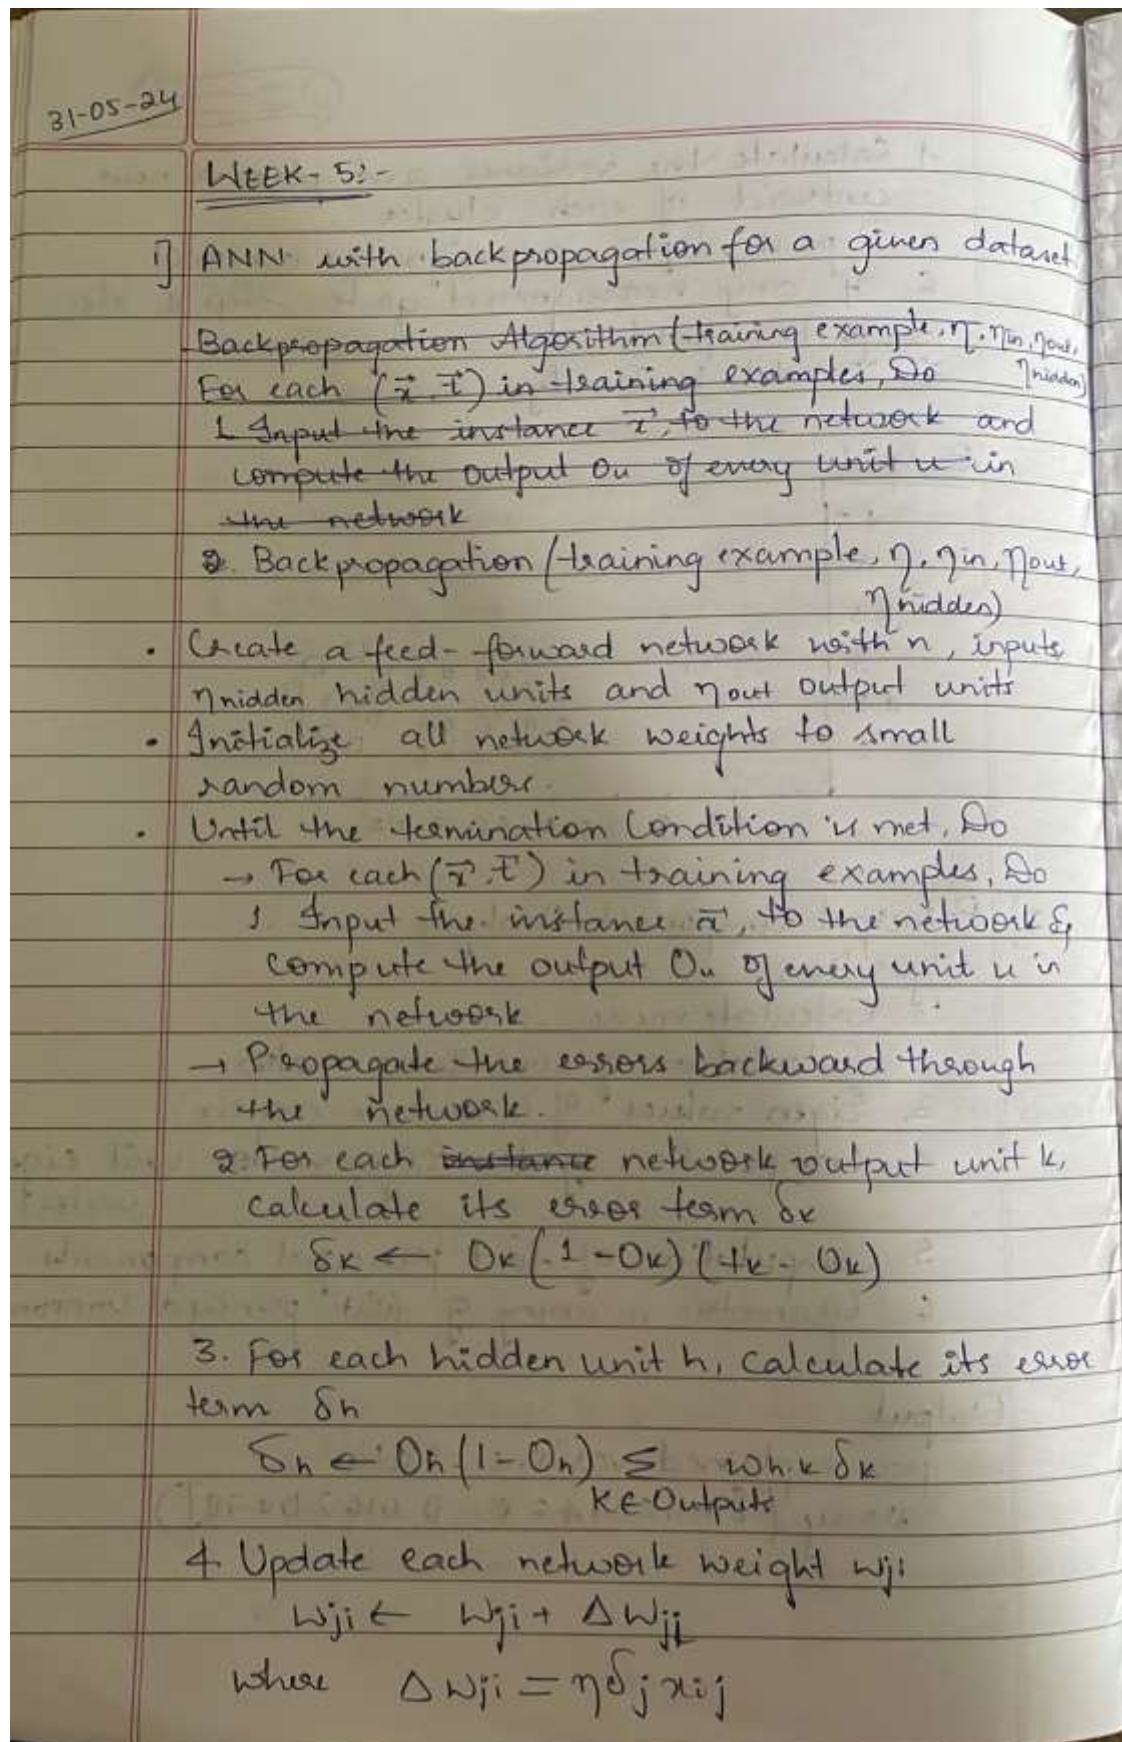 31-05-24
WEEK-5:-
1] ANN with backpropagation for a given dataset
Backpropagation Algorithm (training example, η, ηin, ηout,
ηhidden)
For each (x⃗, t⃗) in training examples, Do
1. Input the instance x⃗, to the network and
compute the output Ou of every unit u in
the network
2. Backpropagation (training example, η, ηin, ηout,
ηhidden)
• Create a feed-forward network with n, inputs
ηhidden hidden units and ηout output units
• Initialize all network weights to small
random numbers.
• Until the termination Condition is met, Do
→ For each (x⃗, t⃗) in training examples, Do
1 Input the instance x⃗, to the network &
compute the output Ou of every unit u in
the network
→ Propagate the errors backward through
the network.
2 For each instance network output unit k,
calculate its error term δk
δk ← Ok(1-Ok)(tk - Ok)
3. For each hidden unit h, calculate its error
term δh
δh ← Oh(1-Oh) Σ wh.k δk
K∈Outputs
4. Update each network weight wji
wji ← wji + Δwji
where Δwji = ηδj xij